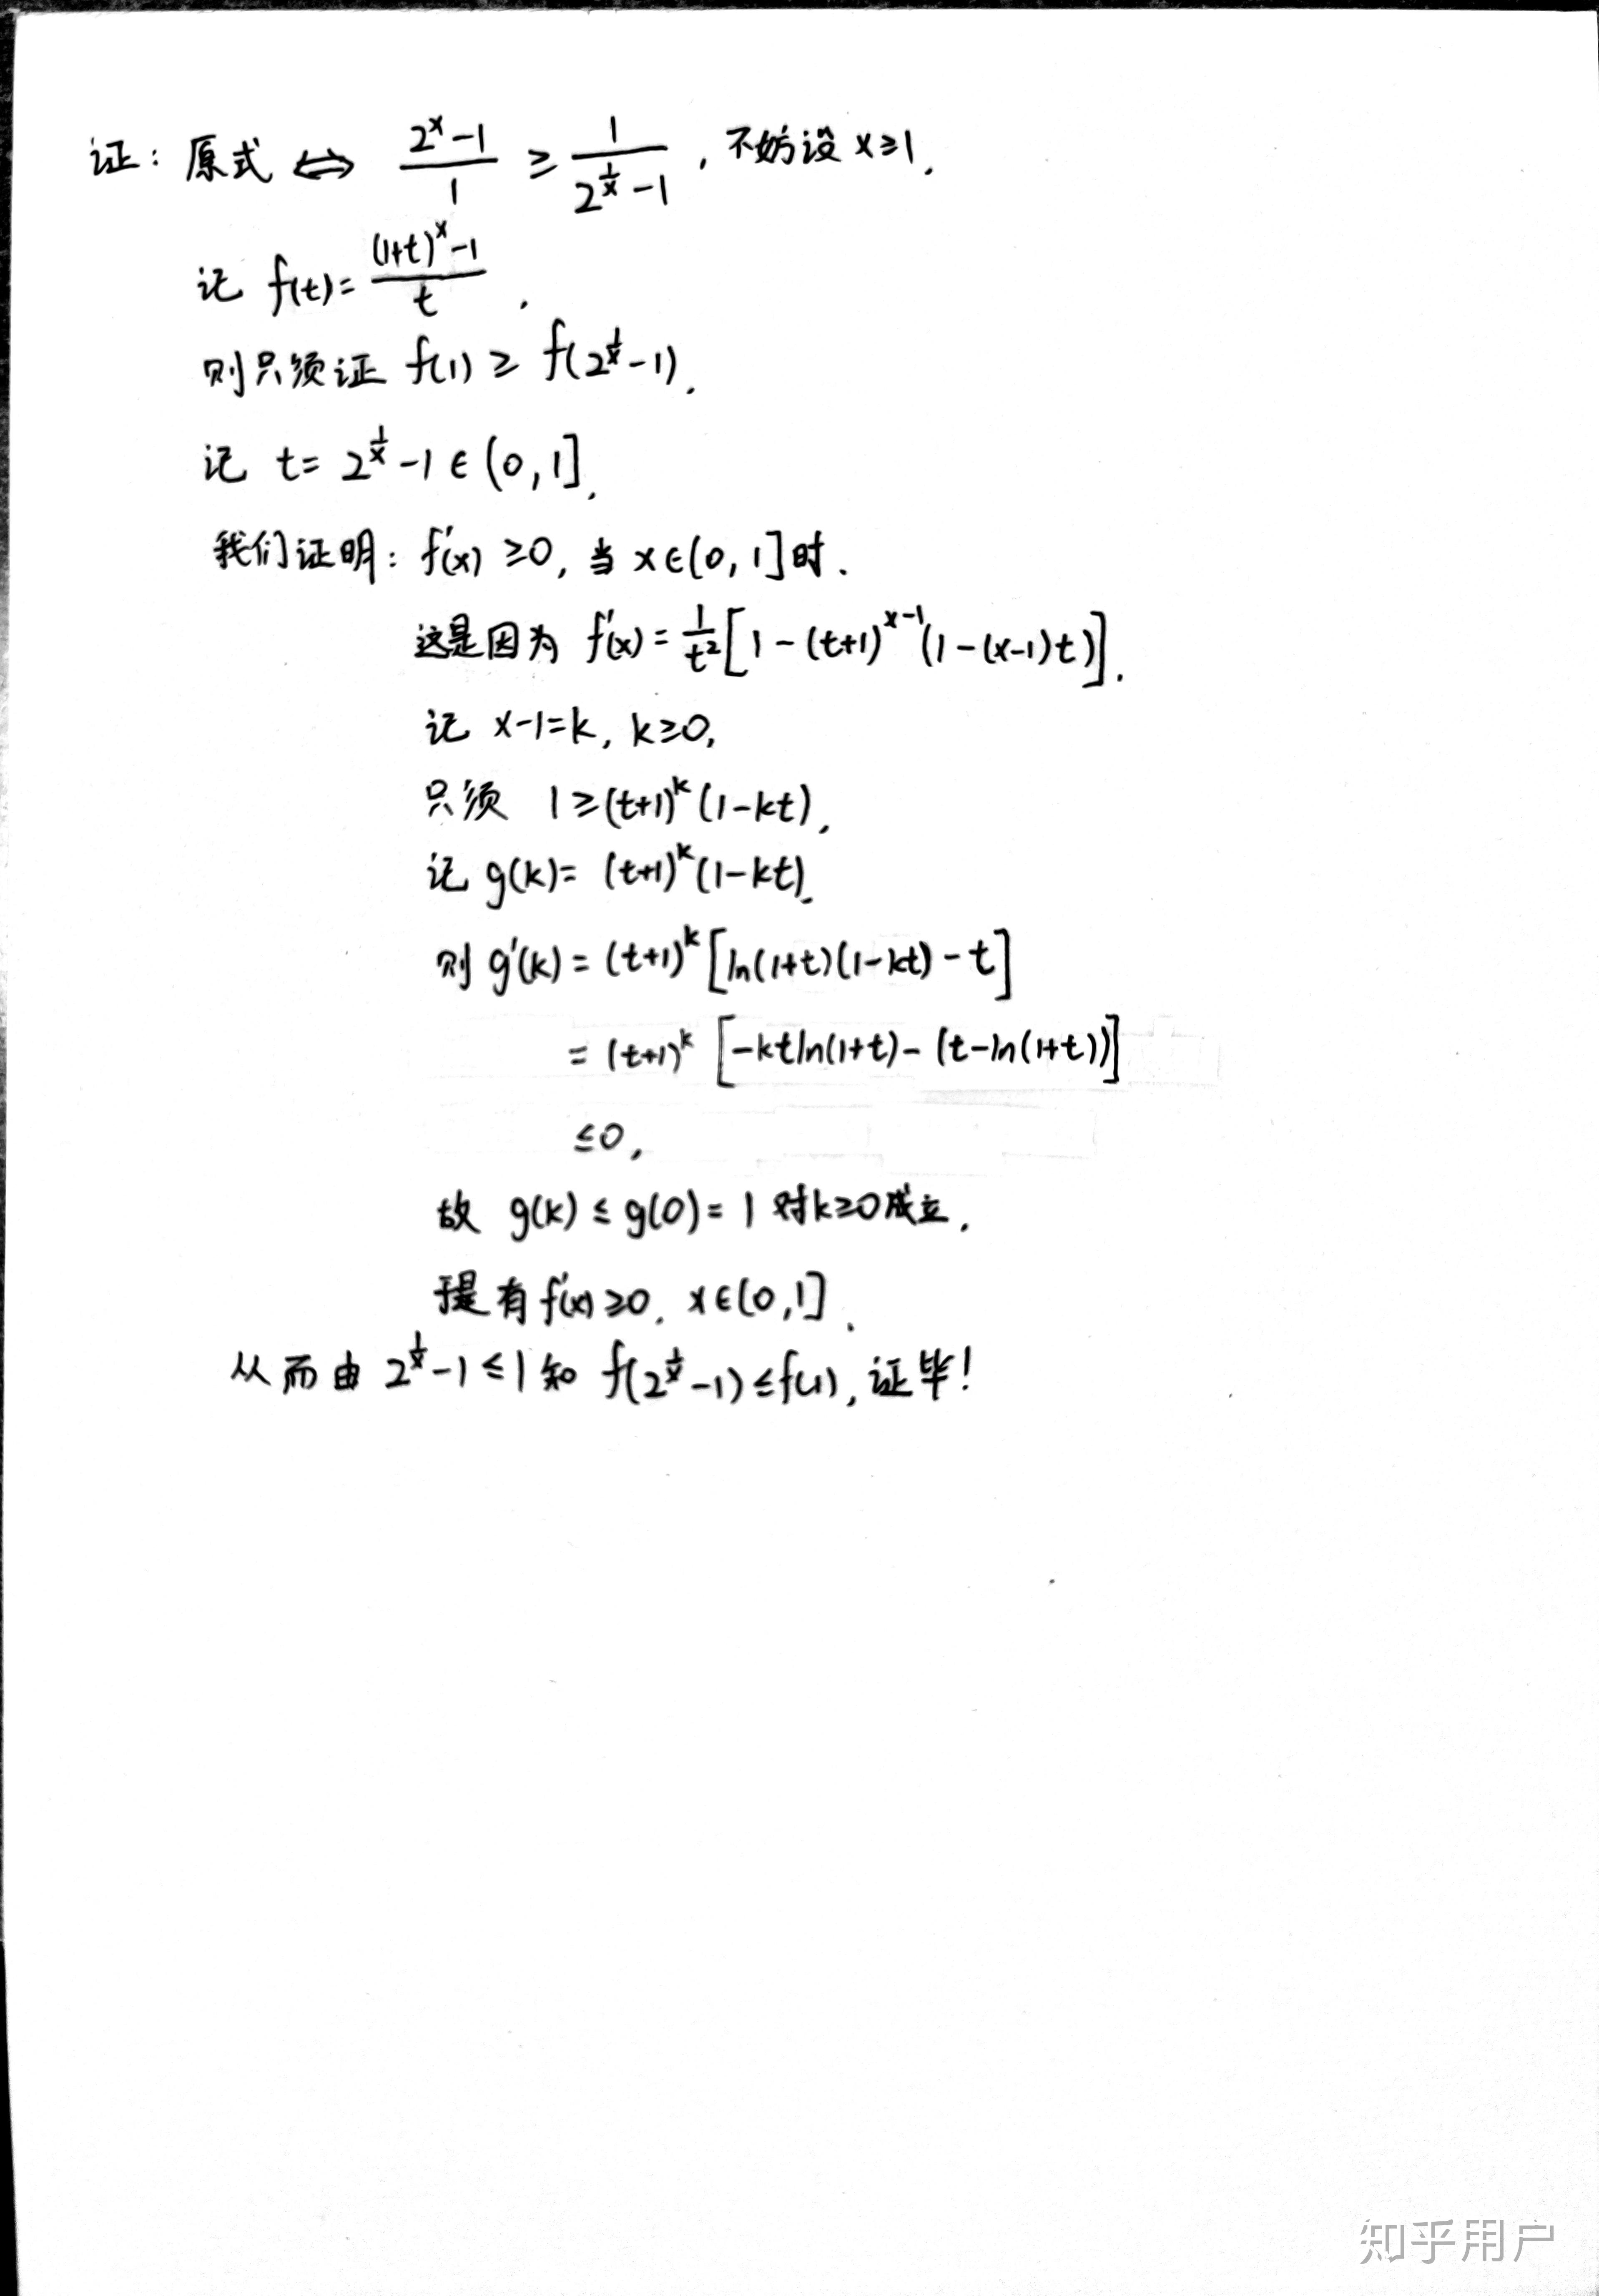 证：原式 ⇔ (2^x-1)/1 ≥ 1/(2^(1/x)-1)，不妨设 x≥1.
记 f(t)=((1+t)^x-1)/t .
则只须证 f(1) ≥ f(2^(1/x)-1).
记 t=2^(1/x)-1∈(0,1].
我们证明：f'(x) ≥0, 当 x∈(0,1]时.
这是因为 f'(x)=1/t²[1-(t+1)^(x-1)(1-(x-1)t)].
记 x-1=k, k≥0,
只须 1≥(t+1)^k(1-kt),
记 g(k)=(t+1)^k(1-kt).
则 g'(k)=(t+1)^k[ln(1+t)(1-kt)-t]
=(t+1)^k[-ktln(1+t)-(t-ln(1+t))]
≤0,
故 g(k)≤g(0)=1 对k≥0成立.
于是有 f'(x)≥0. x∈(0,1].
从而由 2^(1/x)-1≤1 知 f(2^(1/x)-1)≤f(1), 证毕!
知乎用户